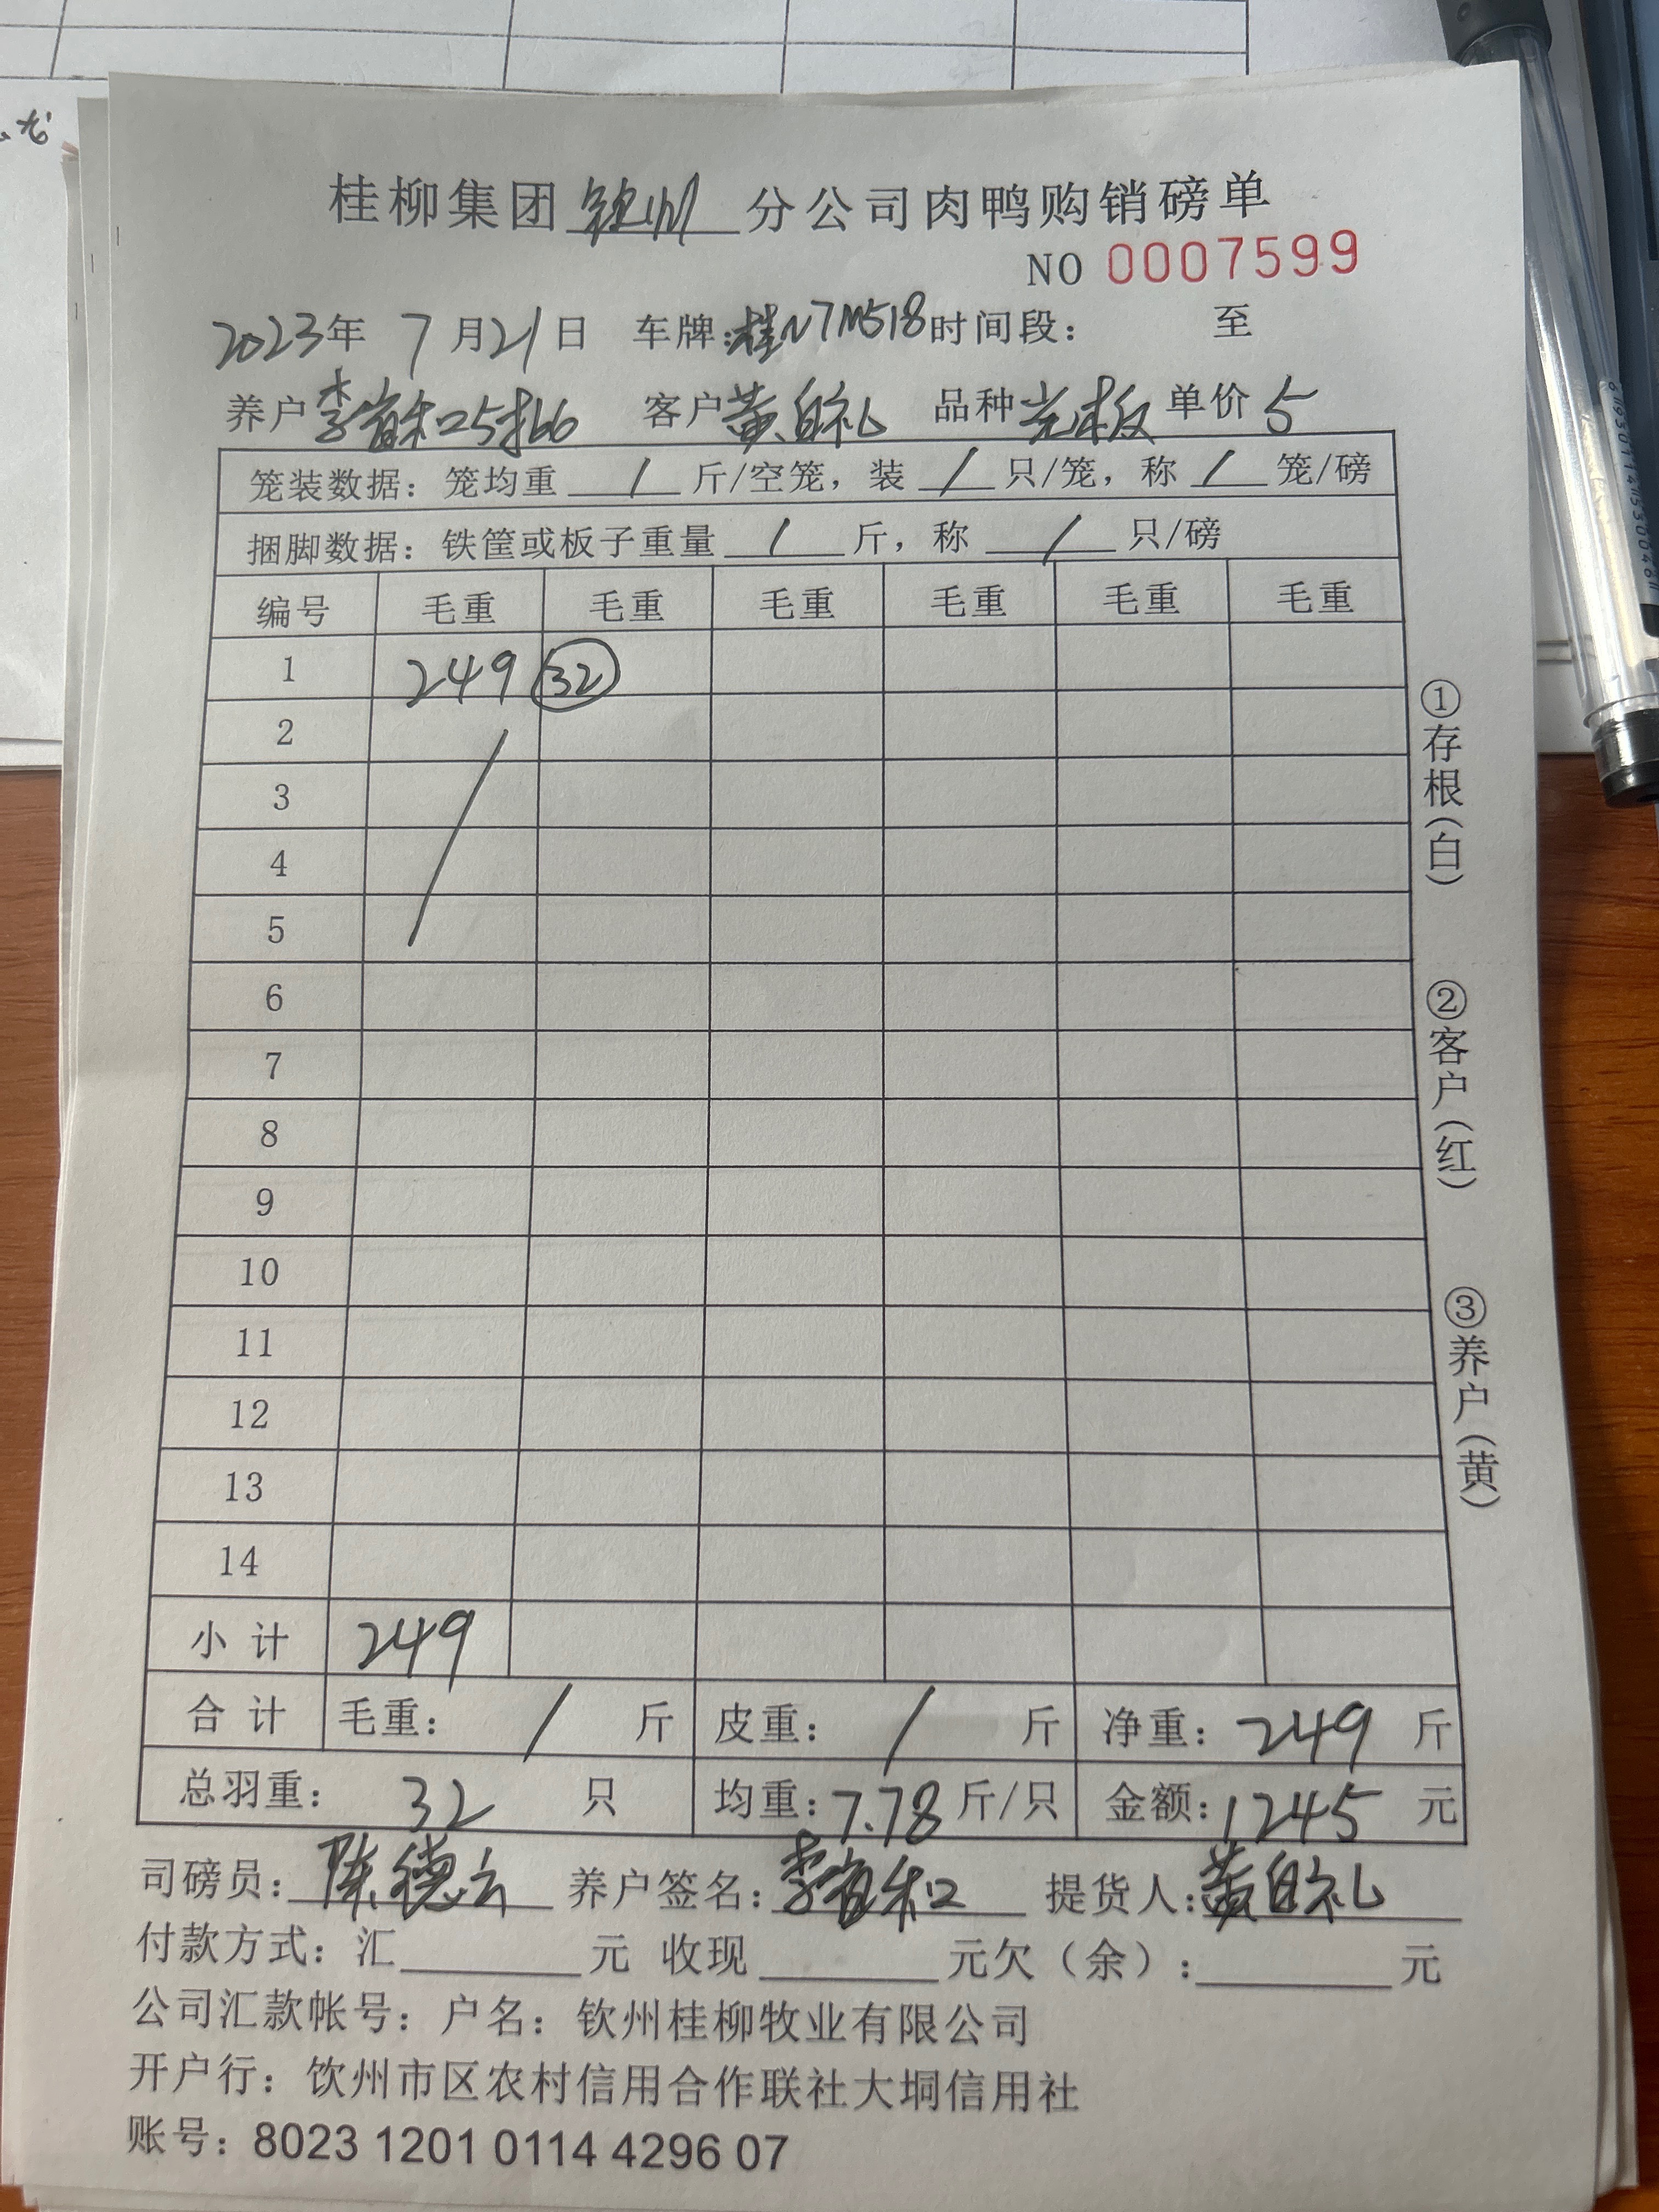 桂柳集团 钦州 分公司肉鸭购销磅单
NO 0007599
2023年 7月21日 车牌:桂N7M518 时间段: 至
养户 李 和 客户 黄自礼 品种 光板 单价 5
笼装数据: 笼均重 / 斤/空笼, 装 / 只/笼, 称 / 笼/磅
捆脚数据: 铁筐或板子重量 / 斤, 称 / 只/磅
编号 毛重 毛重 毛重 毛重 毛重 毛重
1 249 32
2
3
4
5
6
7
8
9
10
11
12
13
14
小计 249
合计 毛重: / 斤 皮重: / 斤 净重: 249 斤
总羽重: 32 只 均重: 7.78 斤/只 金额: 1245 元
司磅员: 陈德云 养户签名: 李 和 提货人: 黄自礼
付款方式: 汇 元 收现 元欠(余): 元
公司汇款帐号: 户名: 钦州桂柳牧业有限公司
开户行: 饮州市区农村信用合作联社大垌信用社
账号: 8023 1201 0114 4296 07
①存根(白)
②客户(红)
③养户(黄)